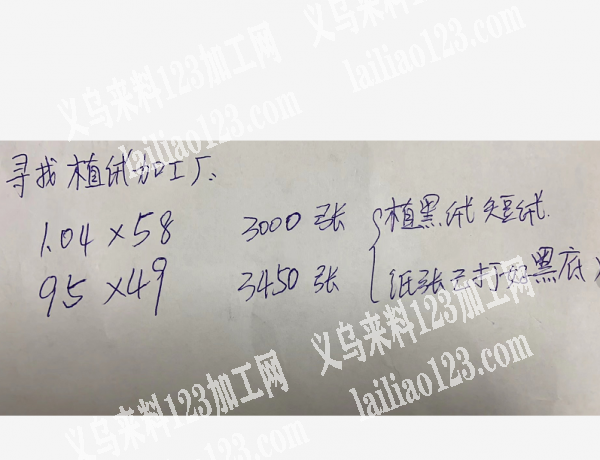 义乌来料123加工网
lailiao123.com
义乌来料123加工网
lailiao123.com
寻找植绒加工厂.
1.04×58 3000张 植黑绒 短绒.
95×49 3450张 纸张已打好黑底
义乌来料123加工网
lailiao123.com
义乌来料123加工网
lailiao123.com